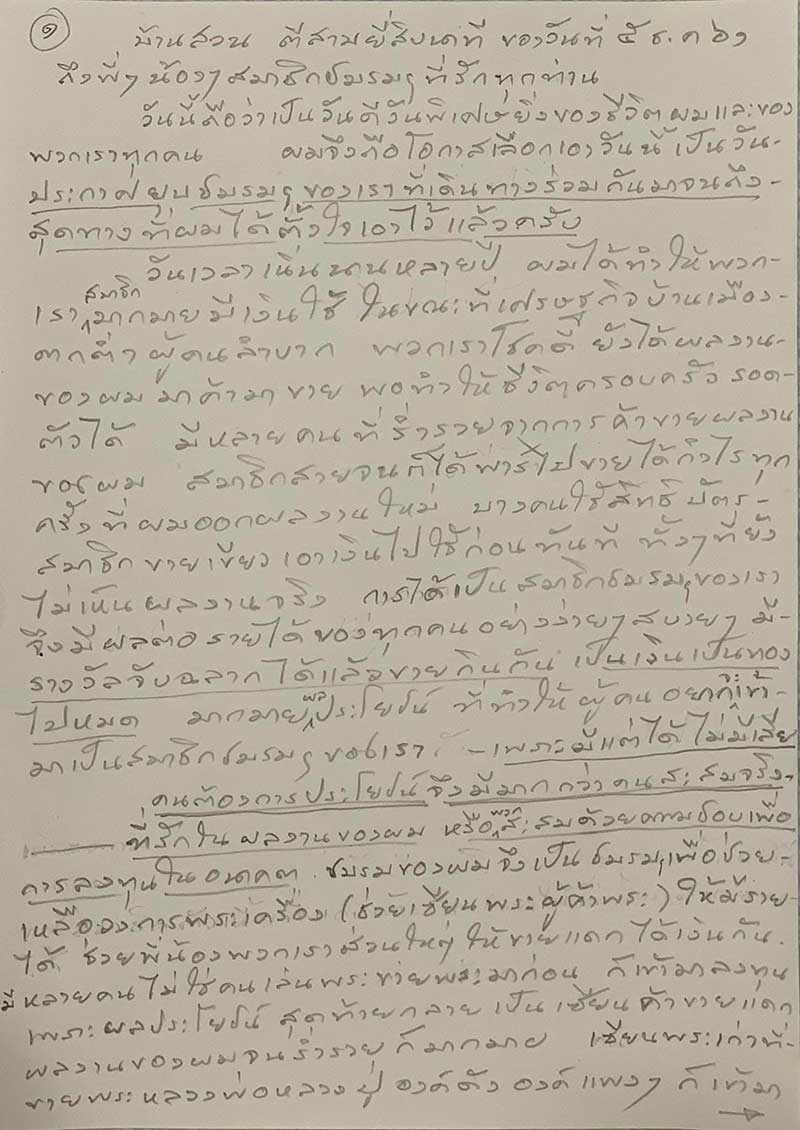 ๑
บ้านสวน ตีสามยี่สิบนาที ของวันที่ ๕ ธ.ค ๖๑
ถึงพี่ๆน้องๆสมาชิกชมรมฯที่รักทุกท่าน
วันนี้ถือว่าเป็นวันดีวันพิเศษยิ่งของชีวิตผมและของ
พวกเราทุกคน ผมจึงถือโอกาสเลือกเอาวันนี้เป็นวัน-
ประกาศยุบชมรมฯของเราที่เดินทางร่วมกันมาจนถึง-
สุดทางที่ผมได้ตั้งใจเอาไว้แล้วครับ
วันเวลาเนิ่นนานหลายปี ผมได้ทำให้พวก-
เราสมาชิกมากมายมีเงินใช้ ในขณะที่เศรษฐกิจบ้านเมือง-
ตกต่ำผู้คนลำบาก พวกเราโชคดี ยังได้ผลงาน-
ของผมมาค้ามาขาย พอทำให้ชีวิตครอบครัวรอด-
ตัวได้ มีหลายคนที่ร่ำรวยจากการค้าขายผลงาน
ของผม สมาชิกสายจนก็ได้พาร์ไปขายได้กำไรทุก
ครั้งที่ผมออกผลงานใหม่ บางคนใช้สิทธิ์บัตร-
สมาชิกขายเขียวเอาเงินไปใช้ก่อนทันที ทั้งๆที่ยัง
ไม่เห็นผลงานจริง การได้เป็นสมาชิกชมรมฯของเรา
จึงมีผลต่อรายได้ของทุกคนอย่างง่ายๆสบายๆ มี-
รางวัลจับฉลากได้แล้วขายกินกัน เป็นเงินเป็นทอง
ไปหมด มากมายผลประโยชน์ ที่ทำให้ผู้คนอยากจะเข้า
มาเป็นสมาชิกชมรมฯของเรา - เพราะมีแต่ได้ไม่มีเสีย
คนต้องการประโยชน์จึงมีมากกว่าคนสะสมจริง-
ที่รักในผลงานของผม หรือพวกสะสมด้วยความชอบเพื่อ
การลงทุนในอนาคต. ชมรมของผมจึงเป็นชมรมฯเพื่อช่วย-
เหลือวงการพระเครื่อง (ช่วยเซียนพระผู้ค้าพระ) ให้มีราย-
ได้ ช่วยพี่น้องพวกเราส่วนใหญ่ให้ขายแดกได้เงินกัน.
มีหลายคนไม่ใช่คนเล่นพระขายพระมาก่อน ก็เข้ามาลงทุน
เพราะผลประโยชน์ สุดท้ายกลายเป็นเซียนค้าขายแดก
ผลงานของผมจนร่ำรวยก็มากมาย เซียนพระเก่าที่-
ขายพระหลวงพ่อหลวงปู่ องค์ดัง องค์แพงๆ ก็เข้ามา